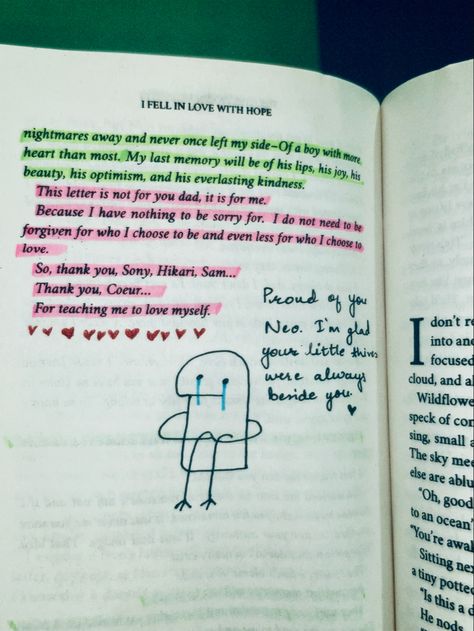 I FELL IN LOVE WITH HOPE
nightmares away and never once left my side–Of a boy with more
heart than most. My last memory will be of his lips, his joy, his
beauty, his optimism, and his everlasting kindness.
This letter is not for you dad, it is for me.
Because I have nothing to be sorry for. I do not need to be
forgiven for who I choose to be and even less for who I choose to
love.
So, thank you, Sony, Hikari, Sam...
Thank you, Coeur...
For teaching me to love myself.
Proud of you
Neo. I'm glad
your little thives
were always
beside you
I don't re
into an
focused
cloud, and a
Wildflowe
speck of con
sing, small a
The sky mee
else are ablu
"Oh, good
to an ocean
"You're awa
Sitting nex
a tiny potte
"Is this a d
He nods